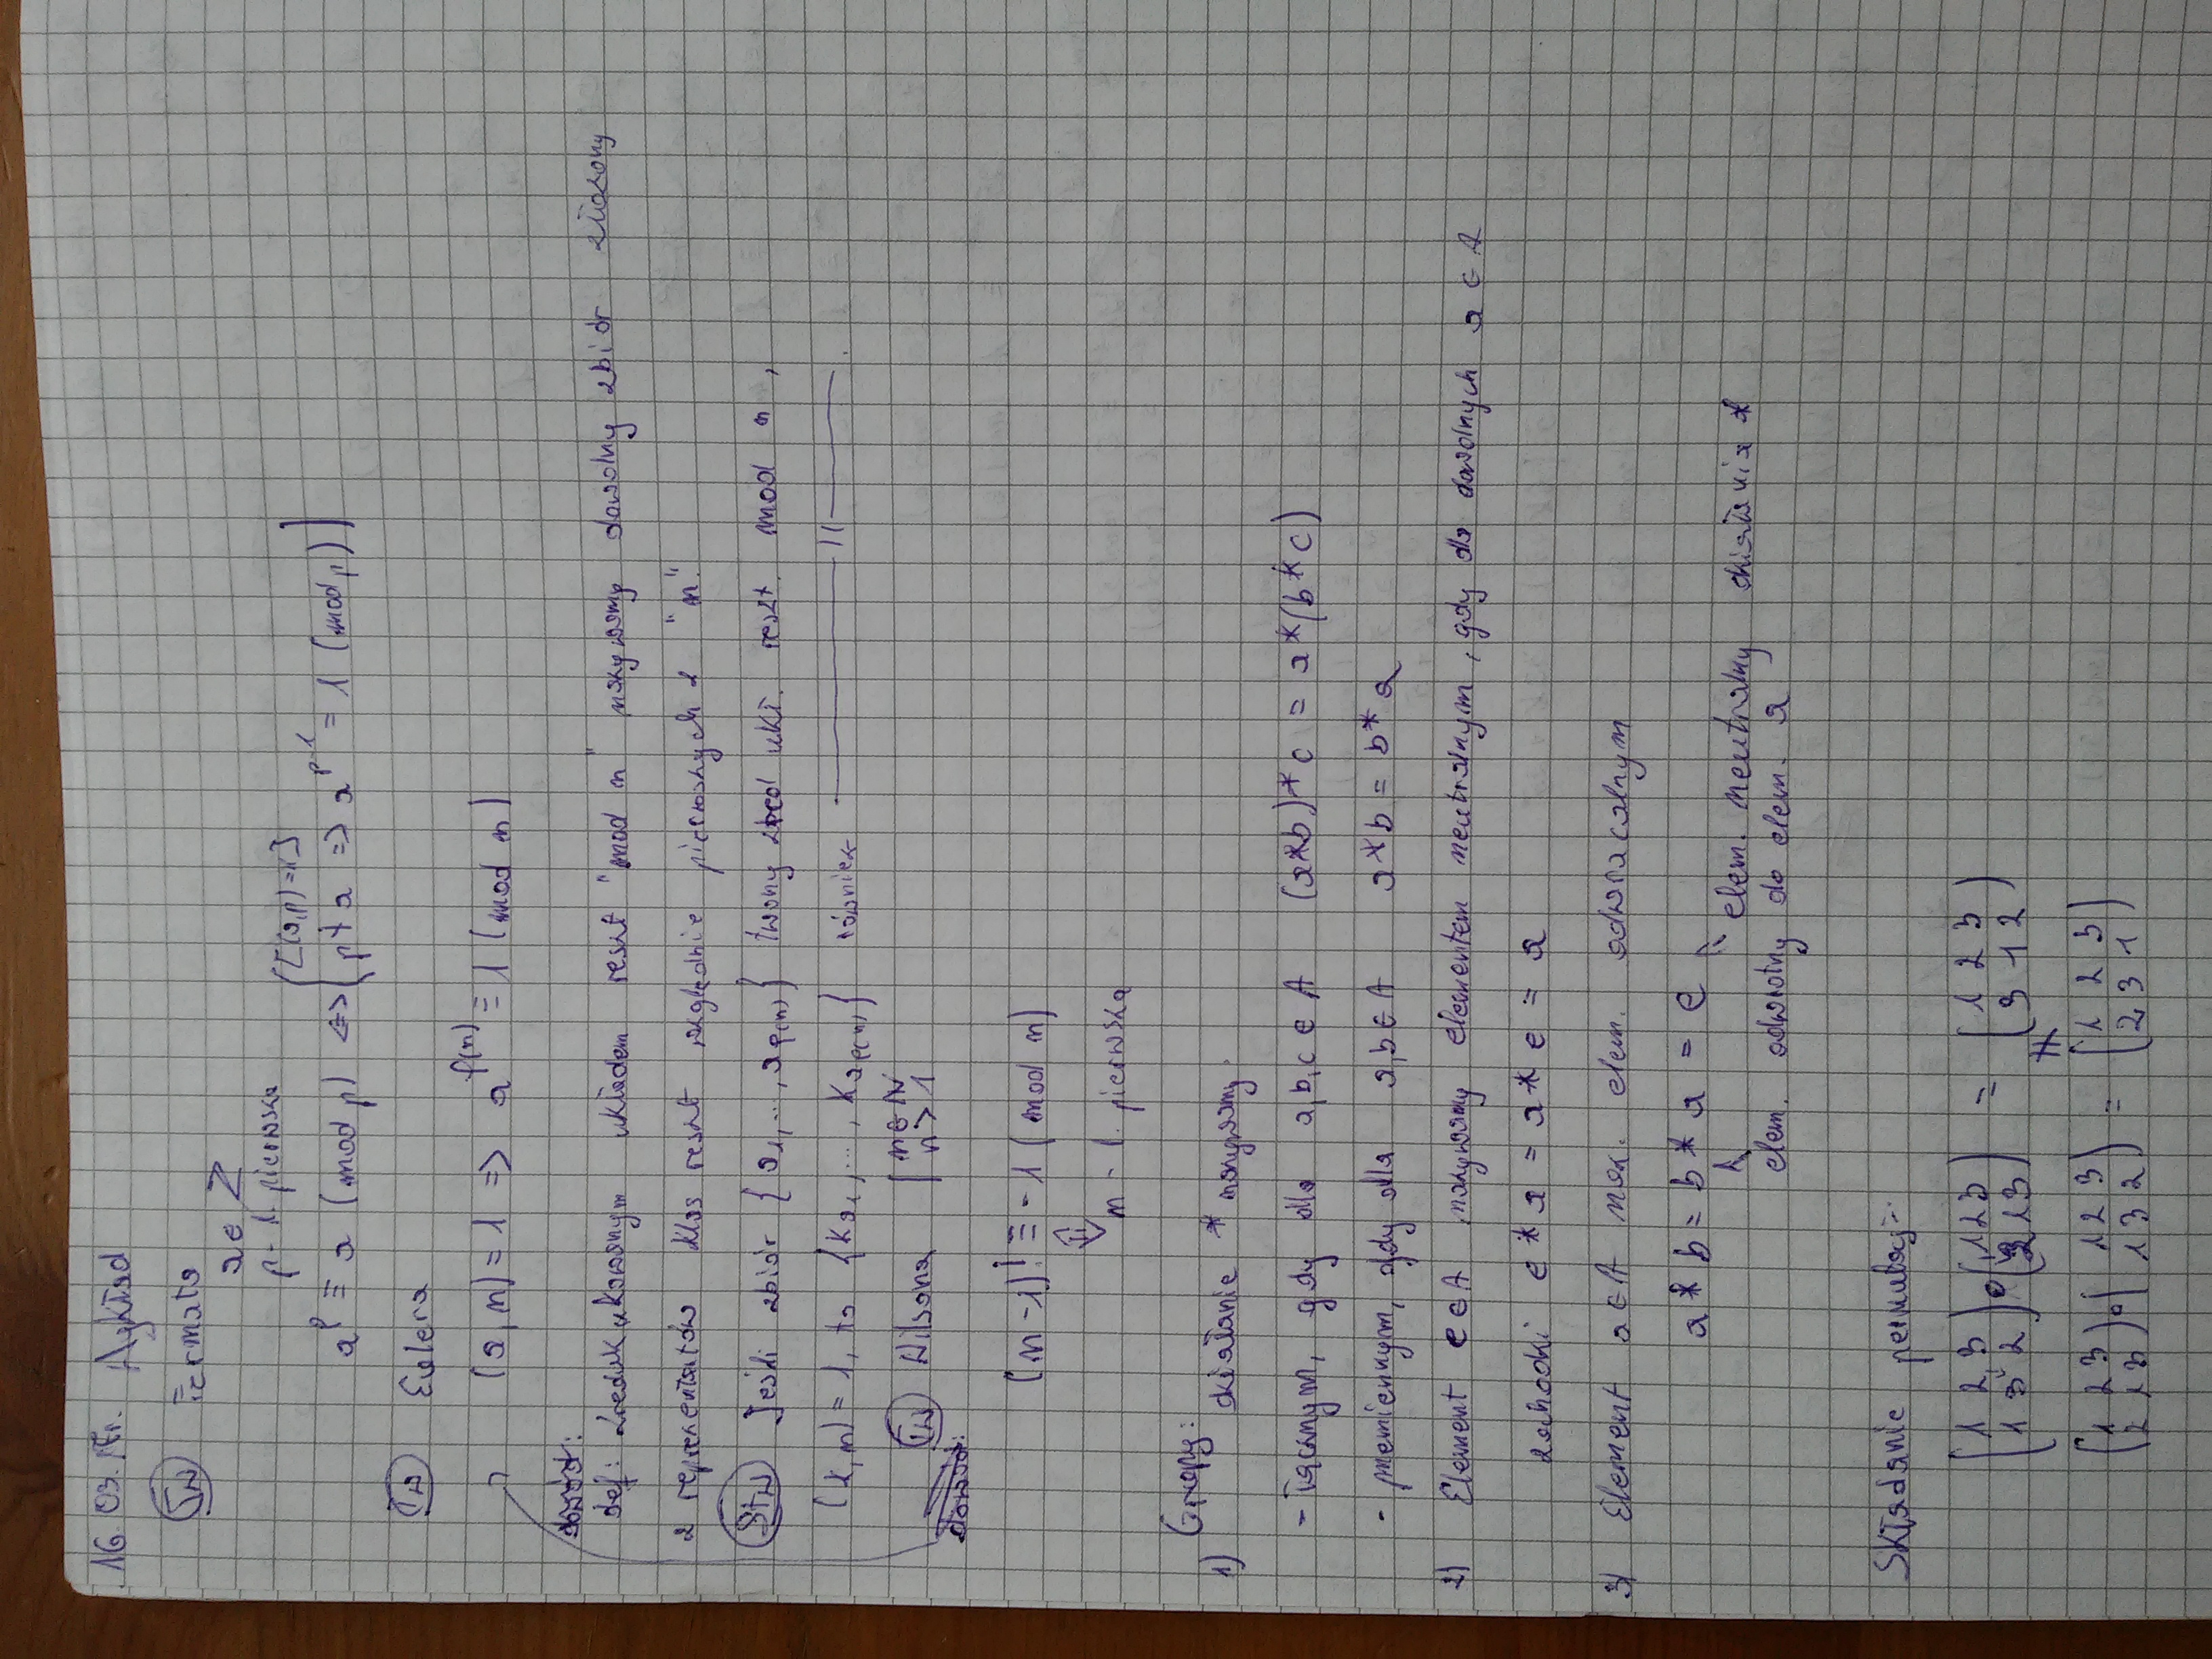 16.03.17r. Wykład
Tw Fermata
a ∈ Z
p - l. pierwsza
[(a,p)=1]
a^p ≡ a (mod p) <=> [p ∤ a => a^(p-1) = 1 (mod p)]
Tw Eulera
(a, n) = 1 => a^φ(n) ≡ 1 (mod n)
dowód:
def: zredukukowanym układem reszt "mod n" nazywamy dowolny zbiór złożony
z reprezentantów klas reszt względnie pierwszych z "n".
Stw Jeśli zbiór {a1, ..., aφ(n)} tworzy zred ukł. reszt. mod n,
(k,n) = 1, to {ka1, ..., kaφ(n)} również —— 11 ——.
Tw Wilsona | n ∈ N
n > 1
dowód:
(n-1)! ≡ -1 (mod n)
⇕
n - l. pierwsza
Grupy:
1) działanie * nazywamy
- łącznym, gdy dla a,b,c ∈ A (a*b)*c = a*(b*c)
- przemiennym, gdy dla a,b ∈ A a*b = b*a
2) Element e ∈ A nazywamy elementem neutralnym, gdy dla dowolnych a ∈ A
zachodzi e*a = a*e = a
3) Element a ∈ A naz. elem. odwracalnym
a*b = b*a = e
elem. neutralny działania *
elem. odwrotny do elem. a
Składanie permutacji
(1 2 3) ∘ (1 2 3) = (1 2 3)
(1 3 2) (2 1 3) (3 1 2)
≠
(1 2 3) ∘ (1 2 3) = (1 2 3)
(2 1 3) (1 3 2) (2 3 1)